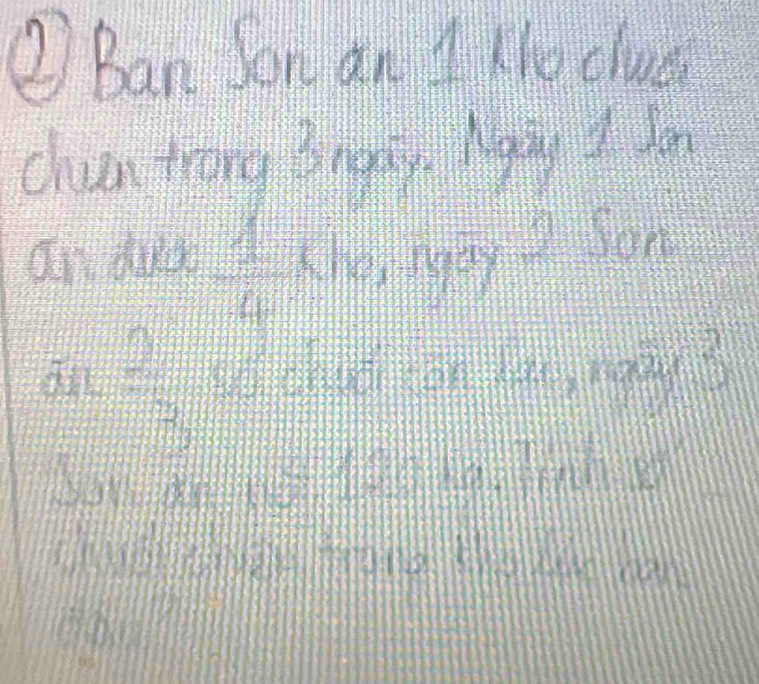 ② Bạn Sơn ăn 1 kho chuối
chuẩn trong 3 ngày. Ngày 1 Sơn
ăn được 1/4 kho, ngày 2 Sơn
ăn 2/3 số chuối còn lại, ngày 3
Sơn ăn kg. Tính số
chuối trong kho lúc ban
đầu?